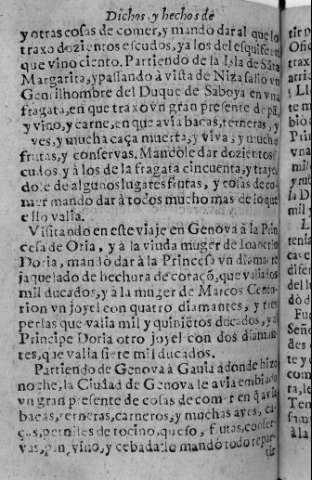 Dichos, y hechos de
y otras cosas de comer, y mando dar al que lo
traxo dozientos escudos, ya los del esquife en
que vino ciento. Partiendo de la Isla de Sāta
Margarita, y passando à vista de Niza salio vn
Gentilhombre del Duque de Saboya en vna
fragata, en que traxo vn gran presente de pā,
y vino, y carne, en que avia bacas, terneras, y
ves, y mucha caça muerta, y viva, y mucho
frutas, y conservas. Mandòle dar dozientos
cudos, y à los de la fragata cincuenta, y trayē
dole de algunos lugares frutas, y cosas de co-
mer mando dar à todos mucho mas de lo que
ello valia.
Visitando en este viaje en Genova à la Prin
cesa de Oria, y à la viuda muger de Ioanetin
Doria, mandò dar à la Princesa vn diamante
jaquelado de hechura de coraçō, que valia dos
mil ducados, y à la muger de Marcos Centu-
rion vn joyel con quatro diamantes, y tres
perlas que valia mil y quiniẽtos ducados, y al
Principe Doria otro joyel con dos diaman-
tes, que valia siete mil ducados.
Partiendo de Genova à Gauia adonde hizo
noche, la Ciudad de Genova le avia embiado
vn gran presente de cosas de comer en q̄ avia
bacas, terneras, carneros, y muchas aves, ca-
ças, perniles de tocino, queso, frutas, conser-
vas, pan, vino, y cebada: lo mandò todo repar-